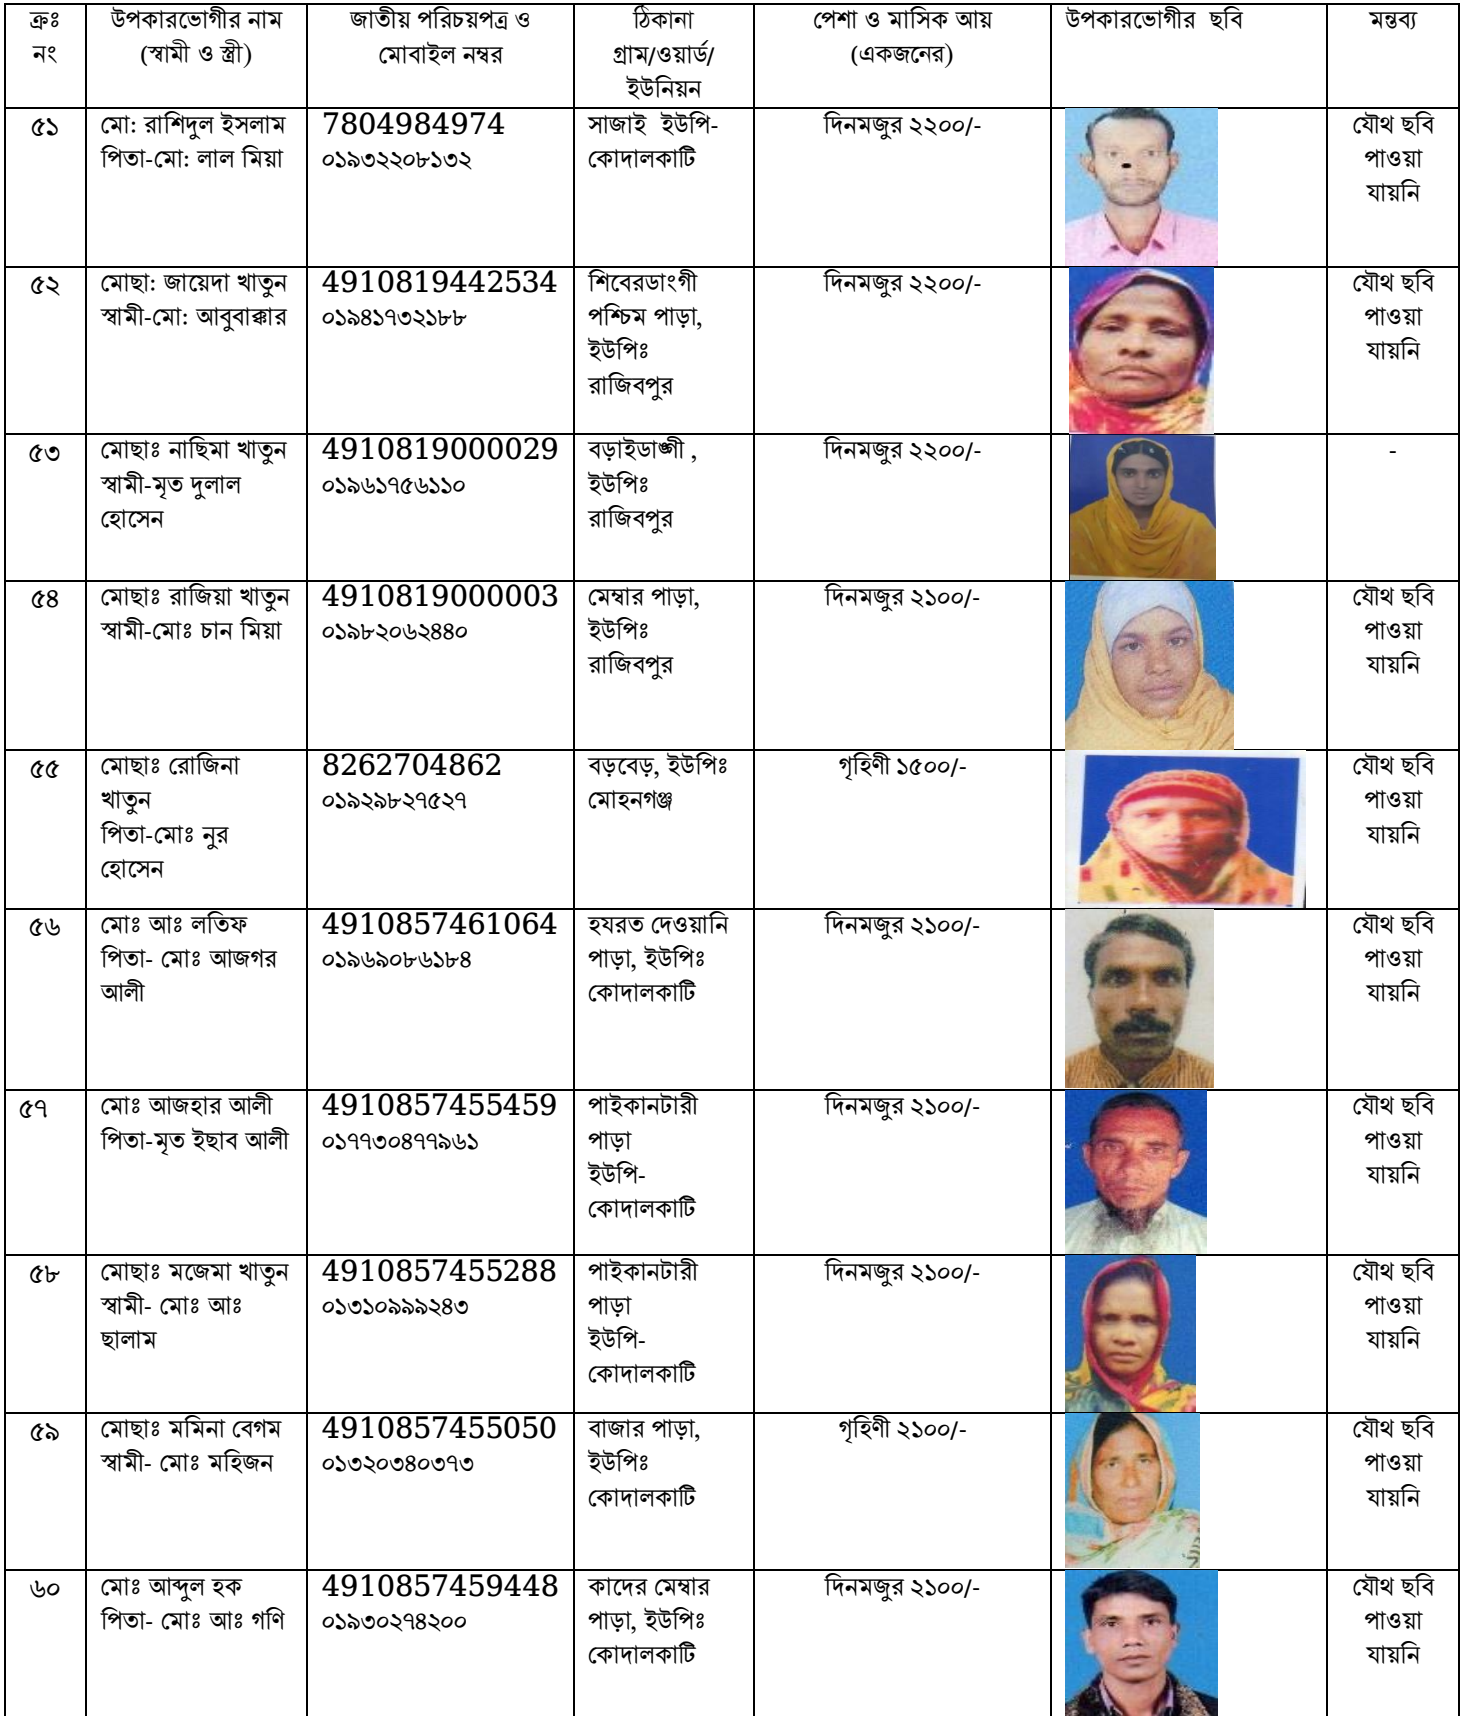 ক্রঃ নং
উপকারভোগীর নাম
(স্বামী ও স্ত্রী)
জাতীয় পরিচয়পত্র ও
মোবাইল নম্বর
ঠিকানা
গ্রাম/ওয়ার্ড/
ইউনিয়ন
পেশা ও মাসিক আয়
(একজনের)
উপকারভোগীর ছবি
মন্তব্য
৫১
মো: রাশিদুল ইসলাম
পিতা-মো: লাল মিয়া
7804984974
০১৯৩২২০৮১৩২
সাজাই ইউপি-
কোদালকাটি
দিনমজুর ২২০০/-
যৌথ ছবি
পাওয়া
যায়নি
৫২
মোছা: জায়েদা খাতুন
স্বামী-মো: আবুবাক্কার
4910819442534
০১৯৪১৭৩২১৮৮
শিবেরডাংগী
পশ্চিম পাড়া,
ইউপিঃ
রাজিবপুর
দিনমজুর ২২০০/-
যৌথ ছবি
পাওয়া
যায়নি
৫৩
মোছাঃ নাছিমা খাতুন
স্বামী-মৃত দুলাল
হোসেন
4910819000029
০১৯৬১৭৫৬১১০
বড়াইডাঙ্গী ,
ইউপিঃ
রাজিবপুর
দিনমজুর ২২০০/-
-
৫৪
মোছাঃ রাজিয়া খাতুন
স্বামী-মোঃ চান মিয়া
4910819000003
০১৯৮২০৬২৪৪০
মেম্বার পাড়া,
ইউপিঃ
রাজিবপুর
দিনমজুর ২১০০/-
যৌথ ছবি
পাওয়া
যায়নি
৫৫
মোছাঃ রোজিনা
খাতুন
পিতা-মোঃ নুর
হোসেন
8262704862
০১৯২৯৮২৭৫২৭
বড়বেড়, ইউপিঃ
মোহনগঞ্জ
গৃহিণী ১৫০০/-
যৌথ ছবি
পাওয়া
যায়নি
৫৬
মোঃ আঃ লতিফ
পিতা- মোঃ আজগর
আলী
4910857461064
০১৯৬৯০৮৬১৮৪
হযরত দেওয়ানি
পাড়া, ইউপিঃ
কোদালকাটি
দিনমজুর ২১০০/-
যৌথ ছবি
পাওয়া
যায়নি
৫৭
মোঃ আজহার আলী
পিতা-মৃত ইছাব আলী
4910857455459
০১৭৭৩০৪৭৭৯৬১
পাইকানটারী
পাড়া
ইউপি-
কোদালকাটি
দিনমজুর ২১০০/-
যৌথ ছবি
পাওয়া
যায়নি
৫৮
মোছাঃ মজেমা খাতুন
স্বামী- মোঃ আঃ
ছালাম
4910857455288
০১৩১০৯৯৯২৪৩
পাইকানটারী
পাড়া
ইউপি-
কোদালকাটি
দিনমজুর ২১০০/-
যৌথ ছবি
পাওয়া
যায়নি
৫৯
মোছাঃ মমিনা বেগম
স্বামী- মোঃ মহিজন
4910857455050
০১৩২০৩৪০৩৭৩
বাজার পাড়া,
ইউপিঃ
কোদালকাটি
গৃহিণী ২১০০/-
যৌথ ছবি
পাওয়া
যায়নি
৬০
মোঃ আব্দুল হক
পিতা- মোঃ আঃ গণি
4910857459448
০১৯৩০২৭৪২০০
কাদের মেম্বার
পাড়া, ইউপিঃ
কোদালকাটি
দিনমজুর ২১০০/-
যৌথ ছবি
পাওয়া
যায়নি